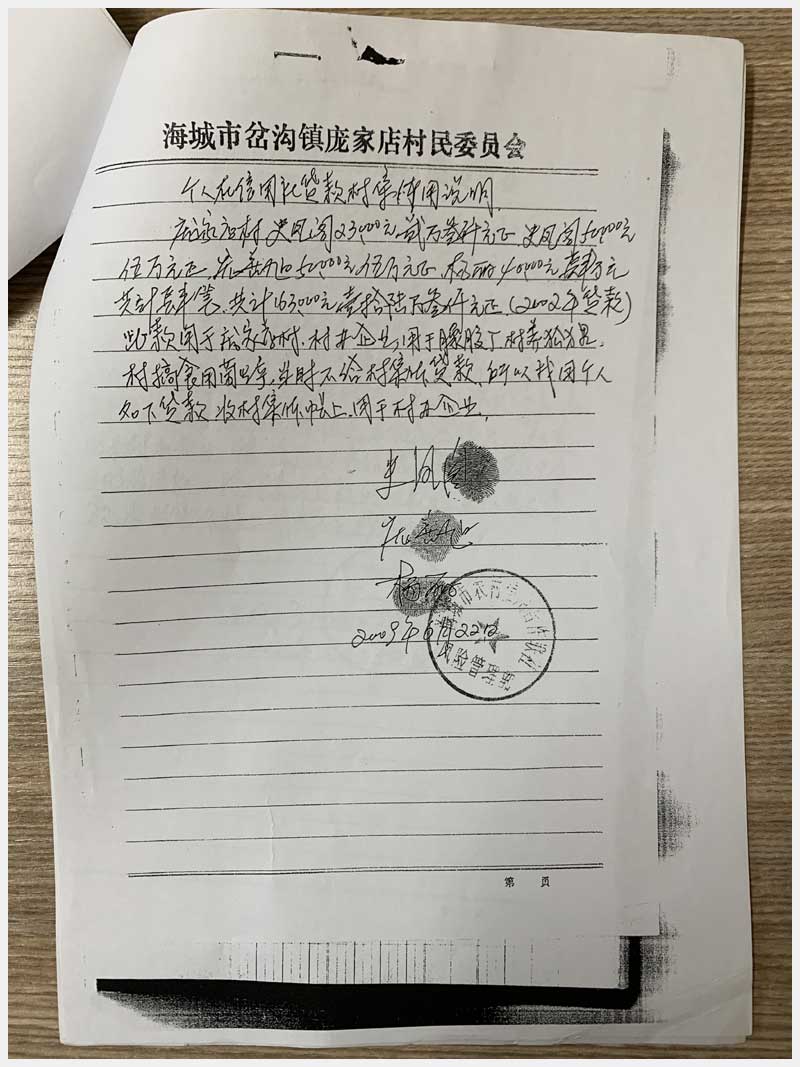 海城市岔沟镇庞家店村民委员会
个人在信用社贷款村集体用说明
庞家店村 史凤阁23000元 贰万叁仟元正 史凤阁50000元
伍万元正 50000元伍万元正 杨丽40000元 肆万元
共计肆笔 共计163000元壹拾陆万叁仟元正(2002年贷款)
此款用于庞家店村 村办企业 用于橡胶厂 村养
村搞食用菌 当时不给村集体贷款 所以找因个人
如下贷款 收村集体帐上 用于村办企业.
史凤阁
杨丽
2009年6月22日
第 页